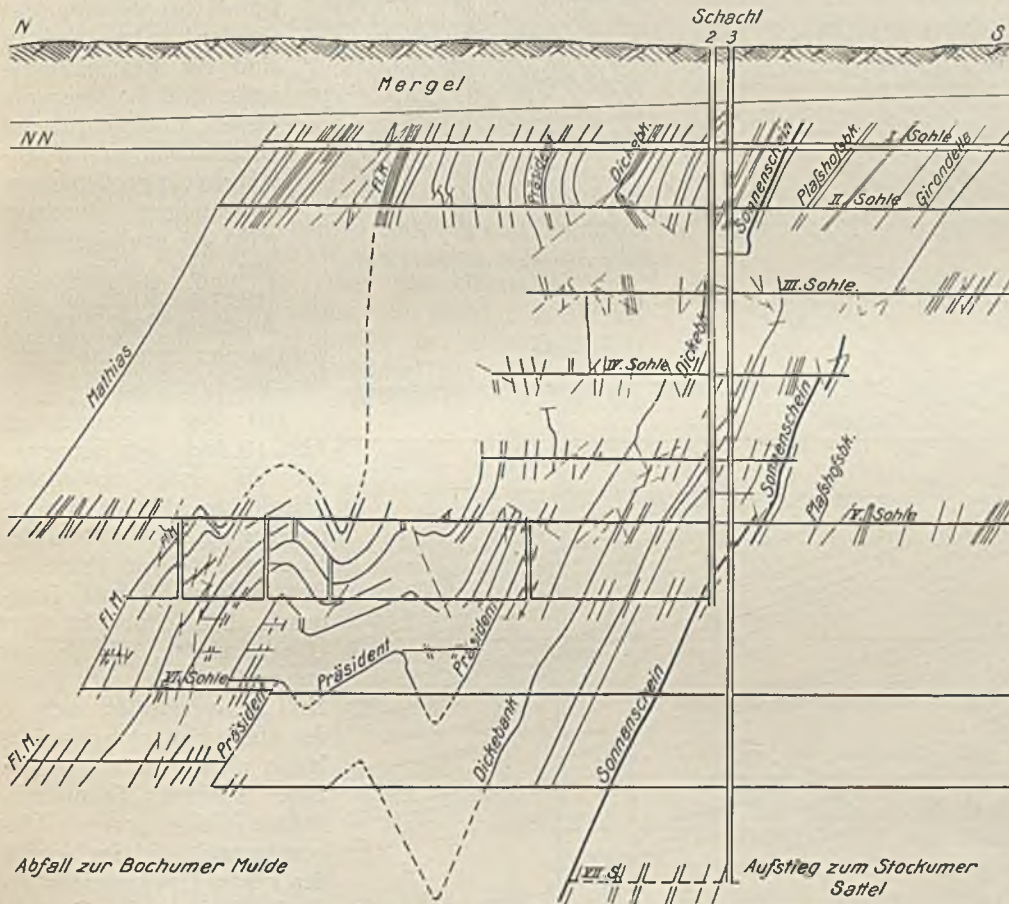 N
Schacht
2 3
S
Mergel
NN
I Sohle
Fl. K
Präsident
Dickebk.
Sonnenschein
Plaßhofsbk.
II. Sohle
Girondelle
III. Sohle.
Mathias
IV. Sohle
Dickebk.
Sonnenschein
Plaßhofsbk.
V. Sohle
Fl. K
Fl. M.
Präsident
Präsident
VI. Sohle
Präsident
Fl. M.
Dickebank
Sonnenschein
VII S.
Abfall zur Bochumer Mulde
Aufstieg zum Stockumer
Sattel